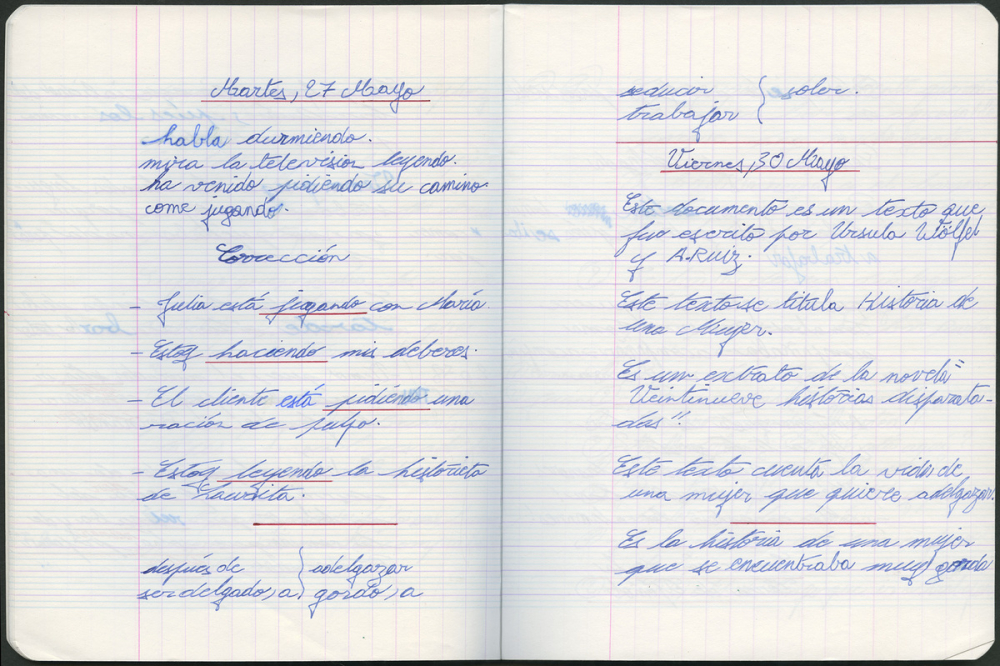 Martes, 27 Mayo
habla durmiendo.
mira la television leyendo.
ha venido pidiendo su camino.
come jugando.
Corrección
- Julia está jugando con María
- Estoy haciendo mis deberes.
- El cliente está pidiendo una
ración de pulpo.
- Estoy leyendo la historieta
de
después de } adelgazar
ser delgado, a } gordo, a
seducir } soler.
trabajar
Viernes, 30 Mayo
Este documento es un texto que
fue escrito por Ursula Wölfel
y A. Ruiz.
Este texto se titula Historia de
una Mujer.
Es un extrato de la novela "
Veintinueve histórias disparata-
das".
Este texto cuenta la vida de
una mujer que quiere adelgazar.
Es la história de una mujer
que se encuentraba muy gorda